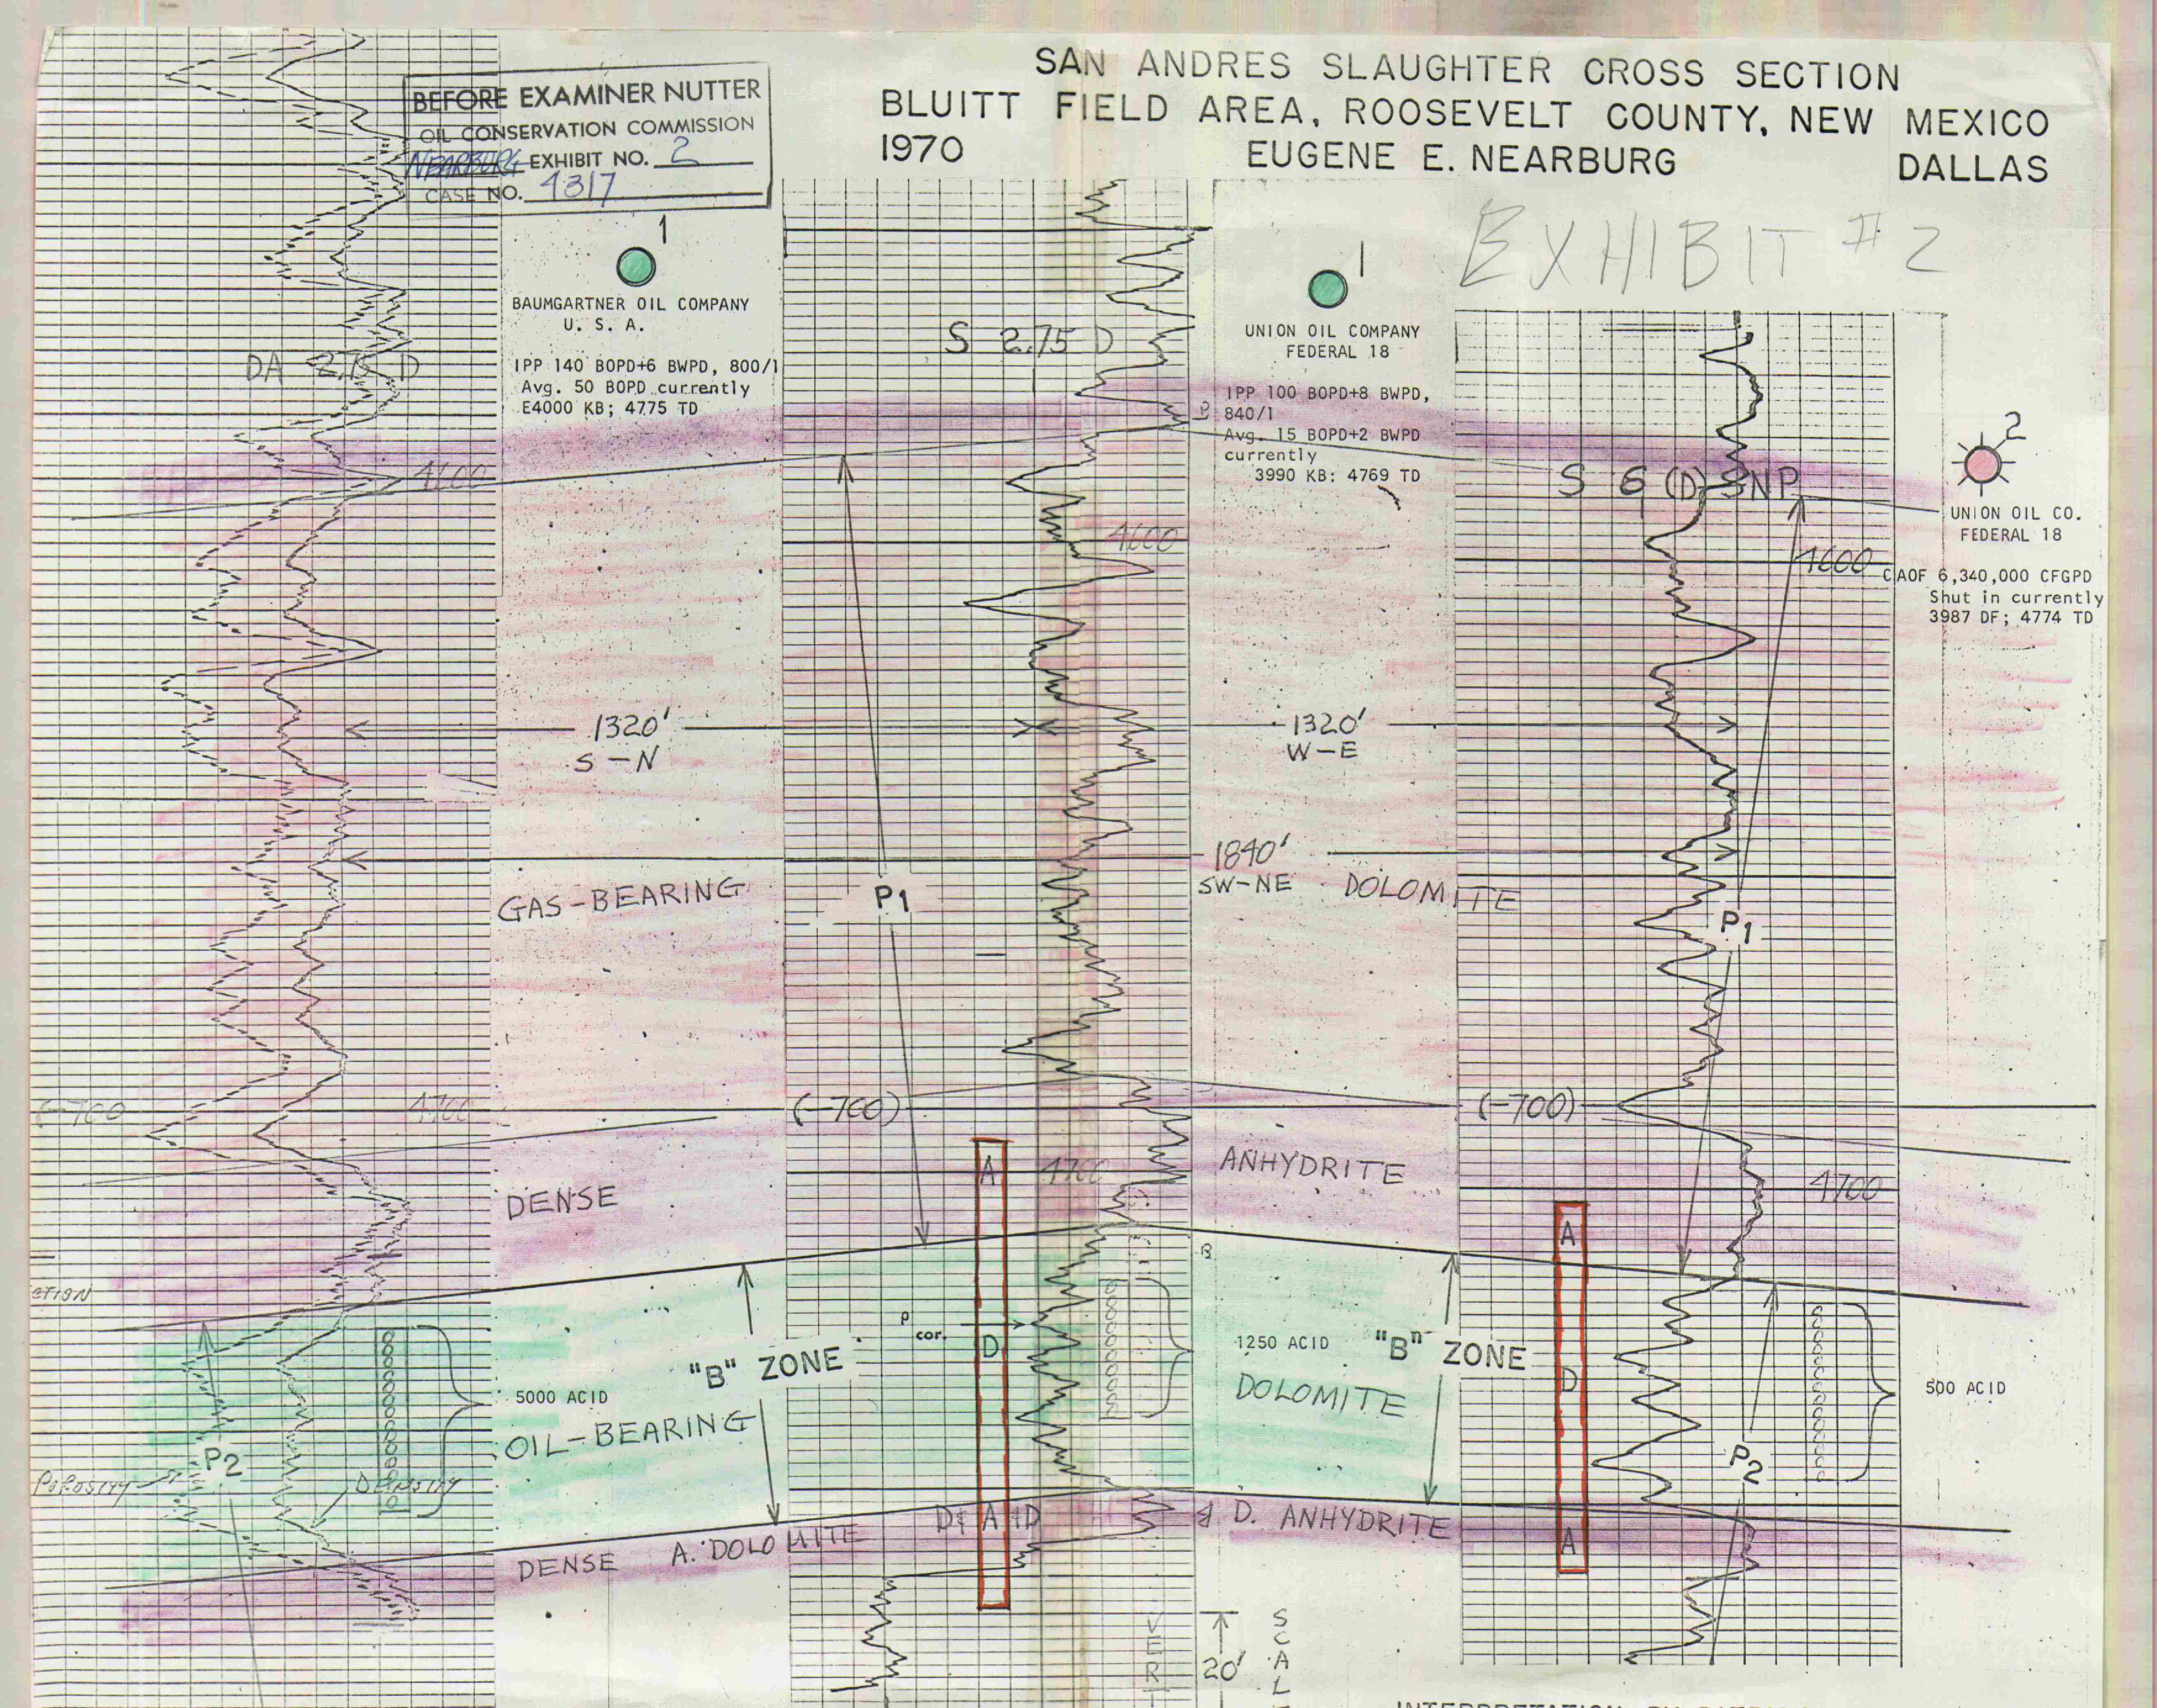 SAN ANDRES SLAUGHTER CROSS SECTION
BLUITT FIELD AREA, ROOSEVELT COUNTY, NEW MEXICO
1970 EUGENE E. NEARBURG DALLAS
BEFORE EXAMINER NUTTER
OIL CONSERVATION COMMISSION
NEARBURG EXHIBIT NO. 2
CASE NO. 4317
EXHIBIT #2
1
BAUMGARTNER OIL COMPANY
U. S. A.
IPP 140 BOPD+6 BWPD, 800/1
Avg. 50 BOPD currently
E4000 KB; 4775 TD
1
UNION OIL COMPANY
FEDERAL 18
IPP 100 BOPD+8 BWPD,
840/1
Avg. 15 BOPD+2 BWPD
currently
3990 KB; 4769 TD
2
UNION OIL CO.
FEDERAL 18
CAOF 6,340,000 CFGPD
Shut in currently
3987 DF; 4774 TD
DA 2.75 D
S 2.75 D
S 6 (D) SNP
4600
4600
4600
1320'
S-N
1320'
W-E
1840'
SW-NE
GAS-BEARING
DOLOMITE
P1
P1
(-700
4700
(-700)
(-700)
DENSE
A
4700
ANHYDRITE
4700
A
B
CTION
P
cor.
D
"B" ZONE
1250 ACID
"B" ZONE
D
5000 ACID
DOLOMITE
500 ACID
OIL-BEARING
P2
P2
POROSITY
DENSITY
DENSE A. DOLOMITE
D& A &D
& D. ANHYDRITE
A
VERT
20'
SCAL